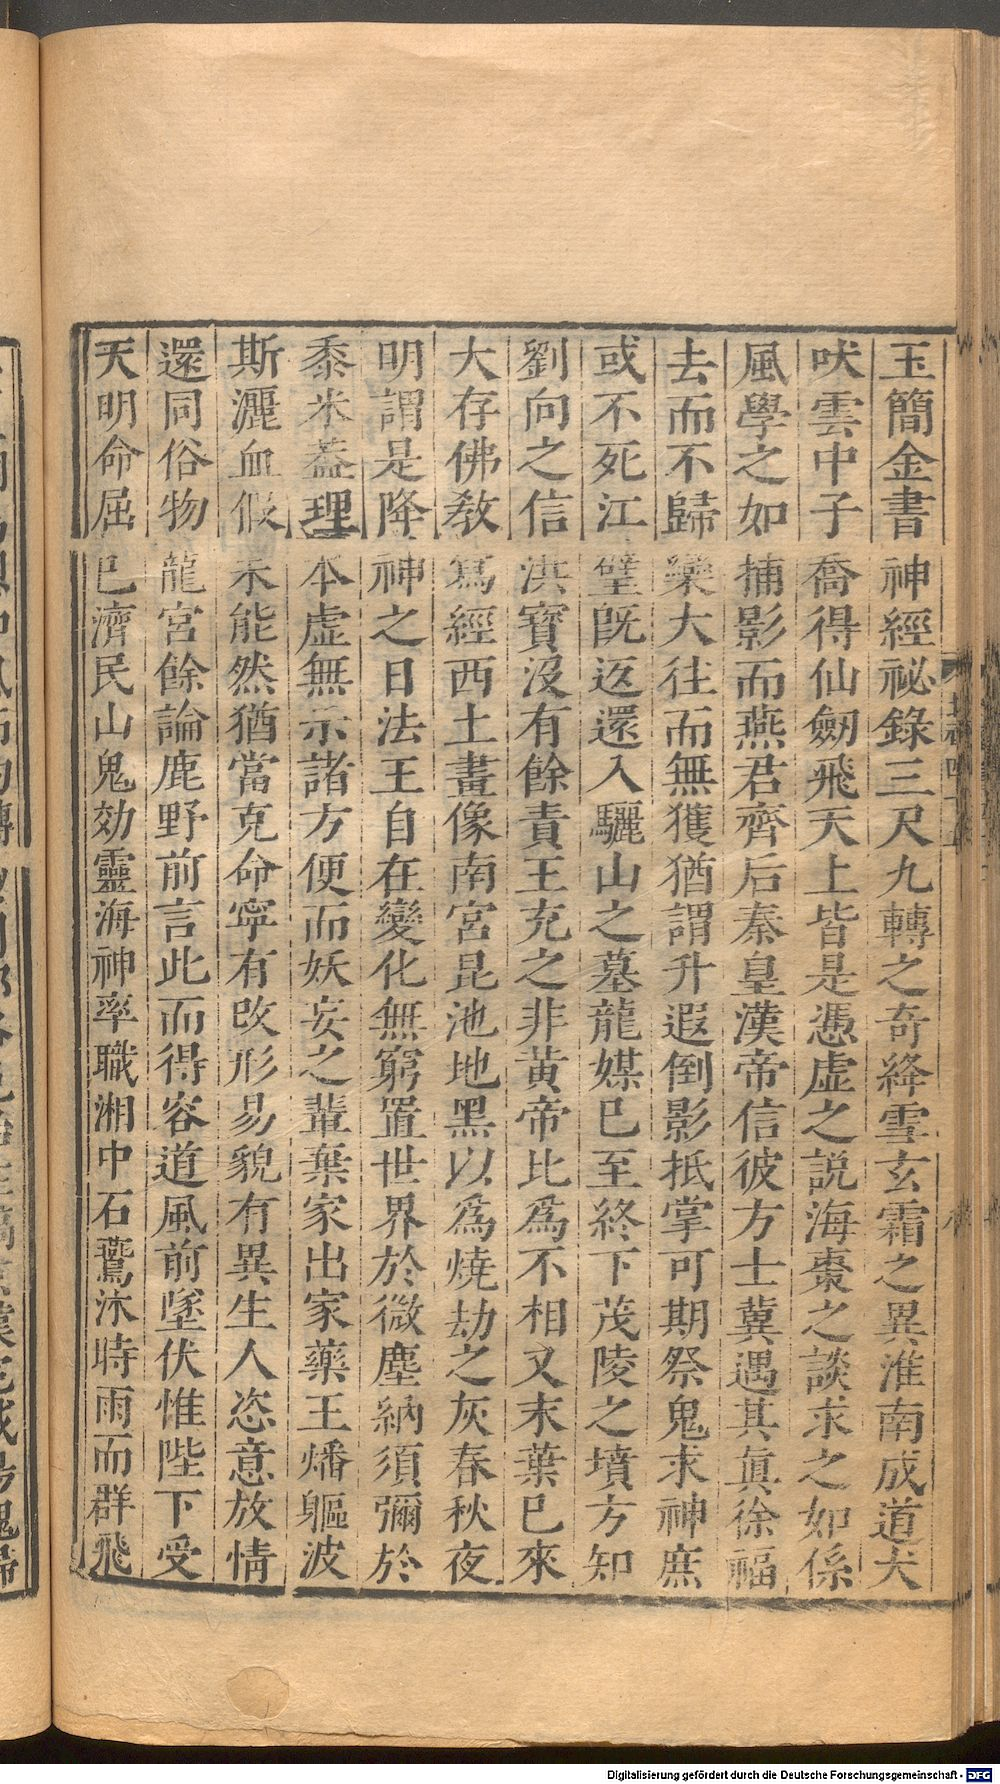 玉簡金書神經祕錄三尺九轉之奇絳雪玄霜之異淮南成道犬
吠雲中子喬得仙劒飛天上皆是憑虛之說海棗之談求之如係
風學之如捕影而燕君齊后秦皇漢帝信彼方士冀遇其眞徐福
去而不歸欒大往而無獲猶謂升遐倒影抵掌可期祭鬼求神庶
或不死江璧旣返還入驪山之墓龍媒巳至終下茂陵之墳方知
劉向之信洪寶沒有餘責王充之非黃帝比爲不相又末葉巳來
大存佛敎寫經西土畫像南宮昆池地黑以爲燒劫之灰春秋夜
明謂是降神之日法王自在變化無窮置世界於微塵納須彌於
黍米蓋理本虛無示諸方便而妖妄之輩棄家出家藥王燔軀波
斯灑血假未能然猶當克命寧有改形易貌有異生人恣意放情
還同俗物龍宮餘論鹿野前言此而得容道風前墜伏惟陛下受
天明命屈巳濟民山鬼効靈海神率職湘中石鷰沐時雨而群飛
Digitalisierung gefördert durch die Deutsche Forschungsgemeinschaft - DFG